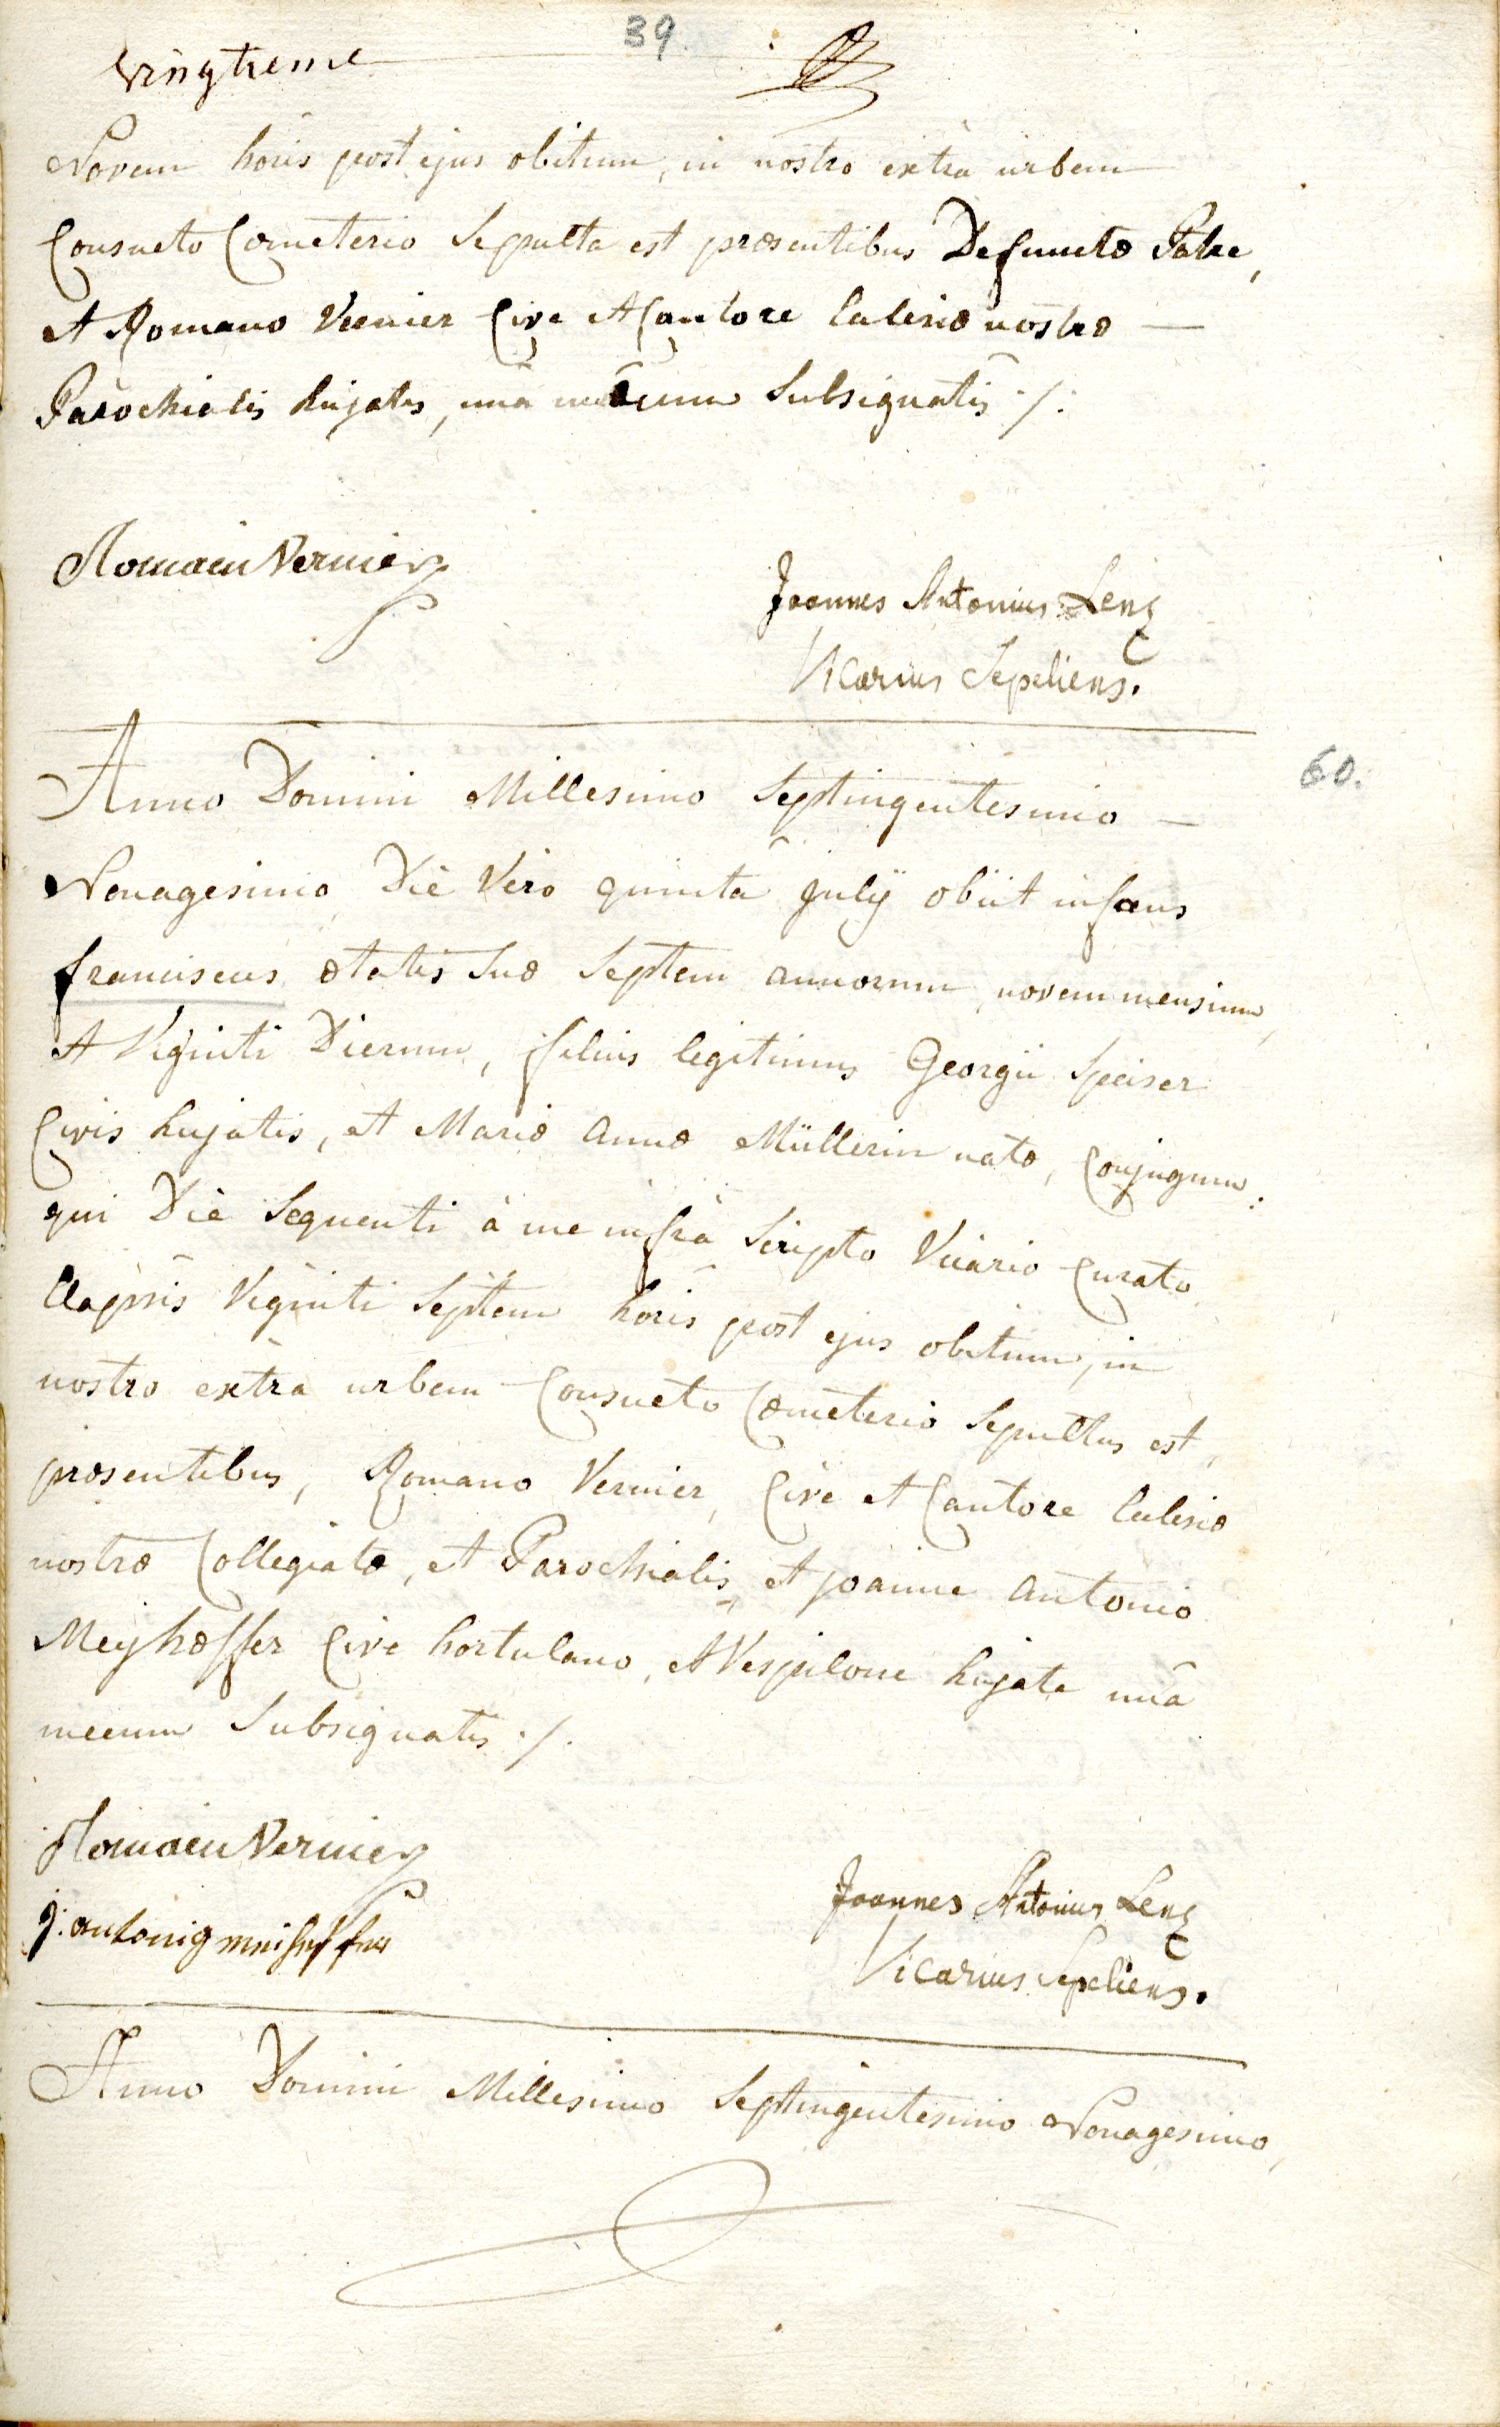 39.
vingtieme
Novem horis post ejus obitum, in nostro extrà urbem
Consueto Cœmeterio Sepulta est præsentibus Defunctæ Patre,
et Romano Vernier Cive et Cantore Eclesiæ nostræ —
Parochialis hujatis, unà mecum Subsignatis ·/:
Romain Vernier
Joannes Antonius Lenz
Vicarius Sepeliens.
60.
Anno Domini Millesimo Septingentesimo —
Nonagesimo, Die Vero quinta julÿ obiit infans
franciscus ætatis Suæ Septem annorum, novem mensium,
et Viginti Dierum, filius legitimus Georgii Speiser
Civis hujatis, et Mariæ annæ Müllerin natæ, Conjugum:
qui Diè Sequenti à me infrà Scripto Vicario Curato
Elapsis Viginti Septem horis post ejus obitum, in
nostro extra urbem Consueto Cœmeterio Sepultus est,
præsentibus, Romano Vernier, Cive et Cantore Eclesiæ
nostræ Collegiatæ, et Parochialis, et joanne antonio
Meÿhoffer Cive hortulano, et Vespilone hujate unà
mecum Subsignatis ·/.
Romain Vernier
j. antonig meihoffer
Joannes Antonius Lenz
Vicarius Sepeliens.
Anno Domini Millesimo Septingentesimo Nonagesimo,